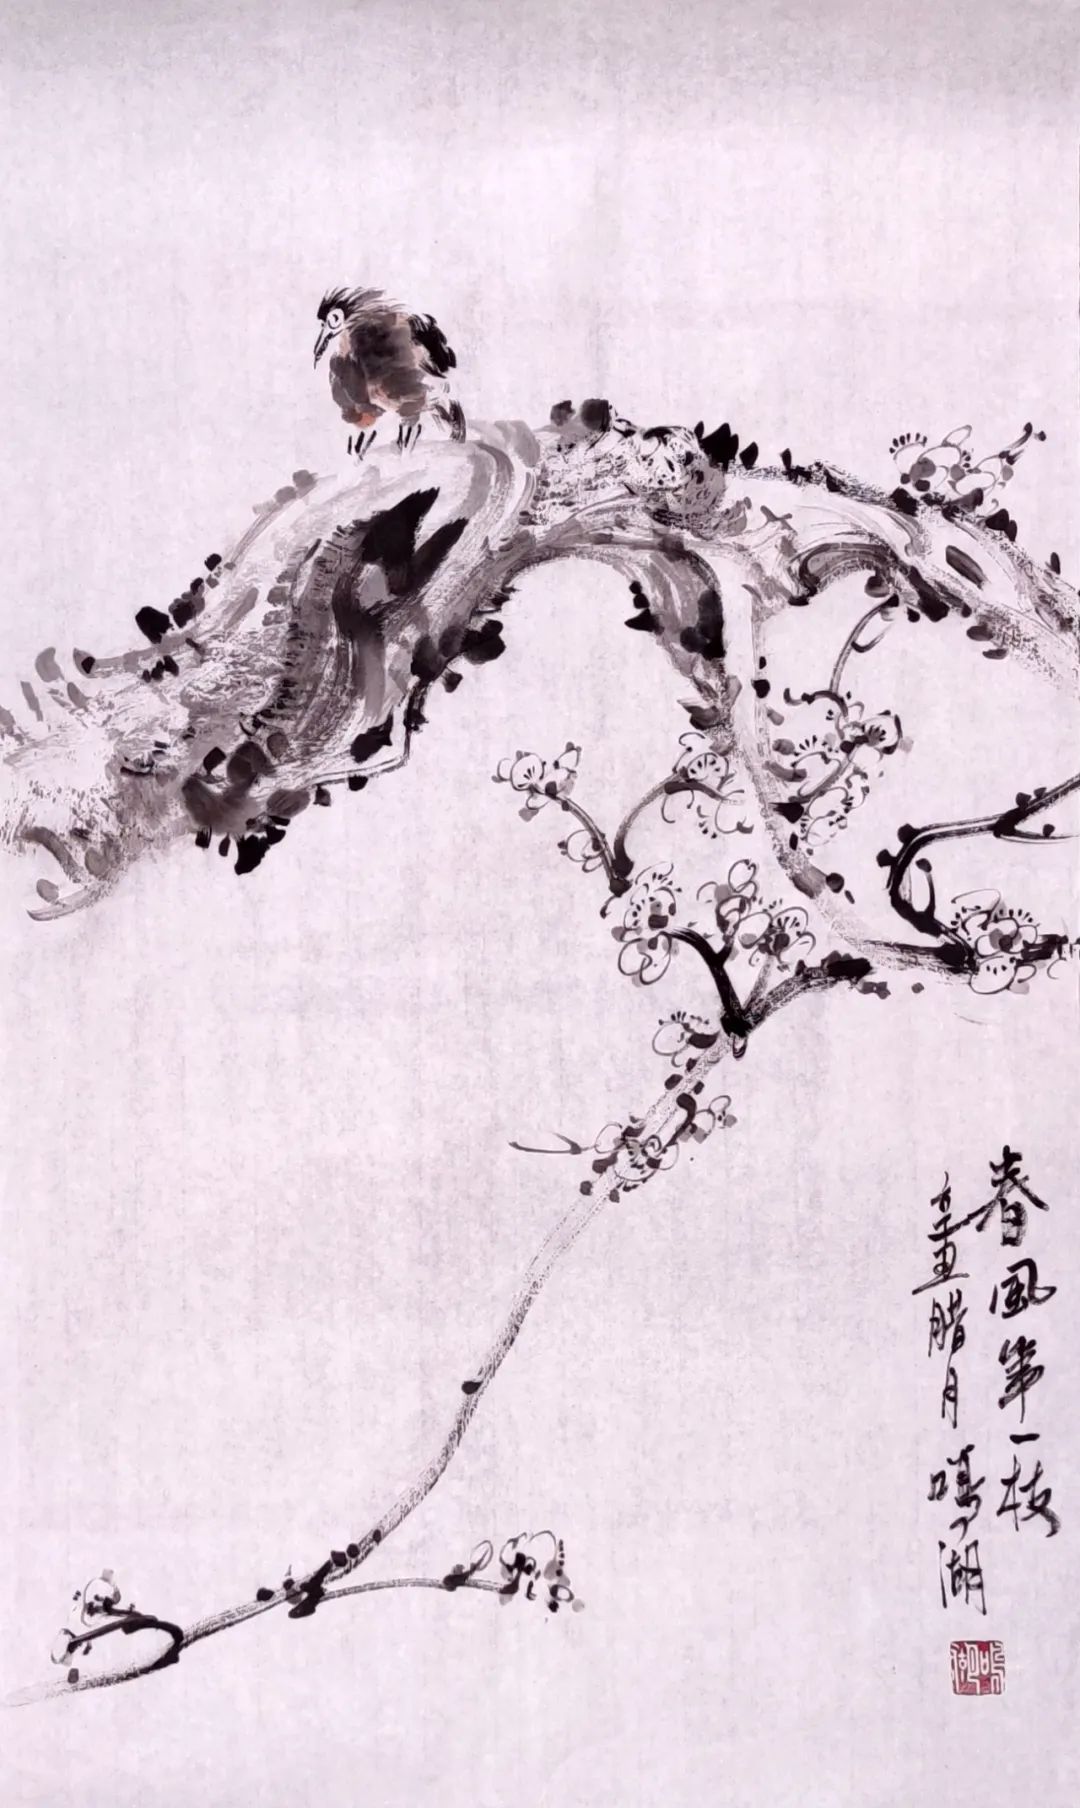 春風第一枝
辛丑腊月 鳴湖
鳴湖